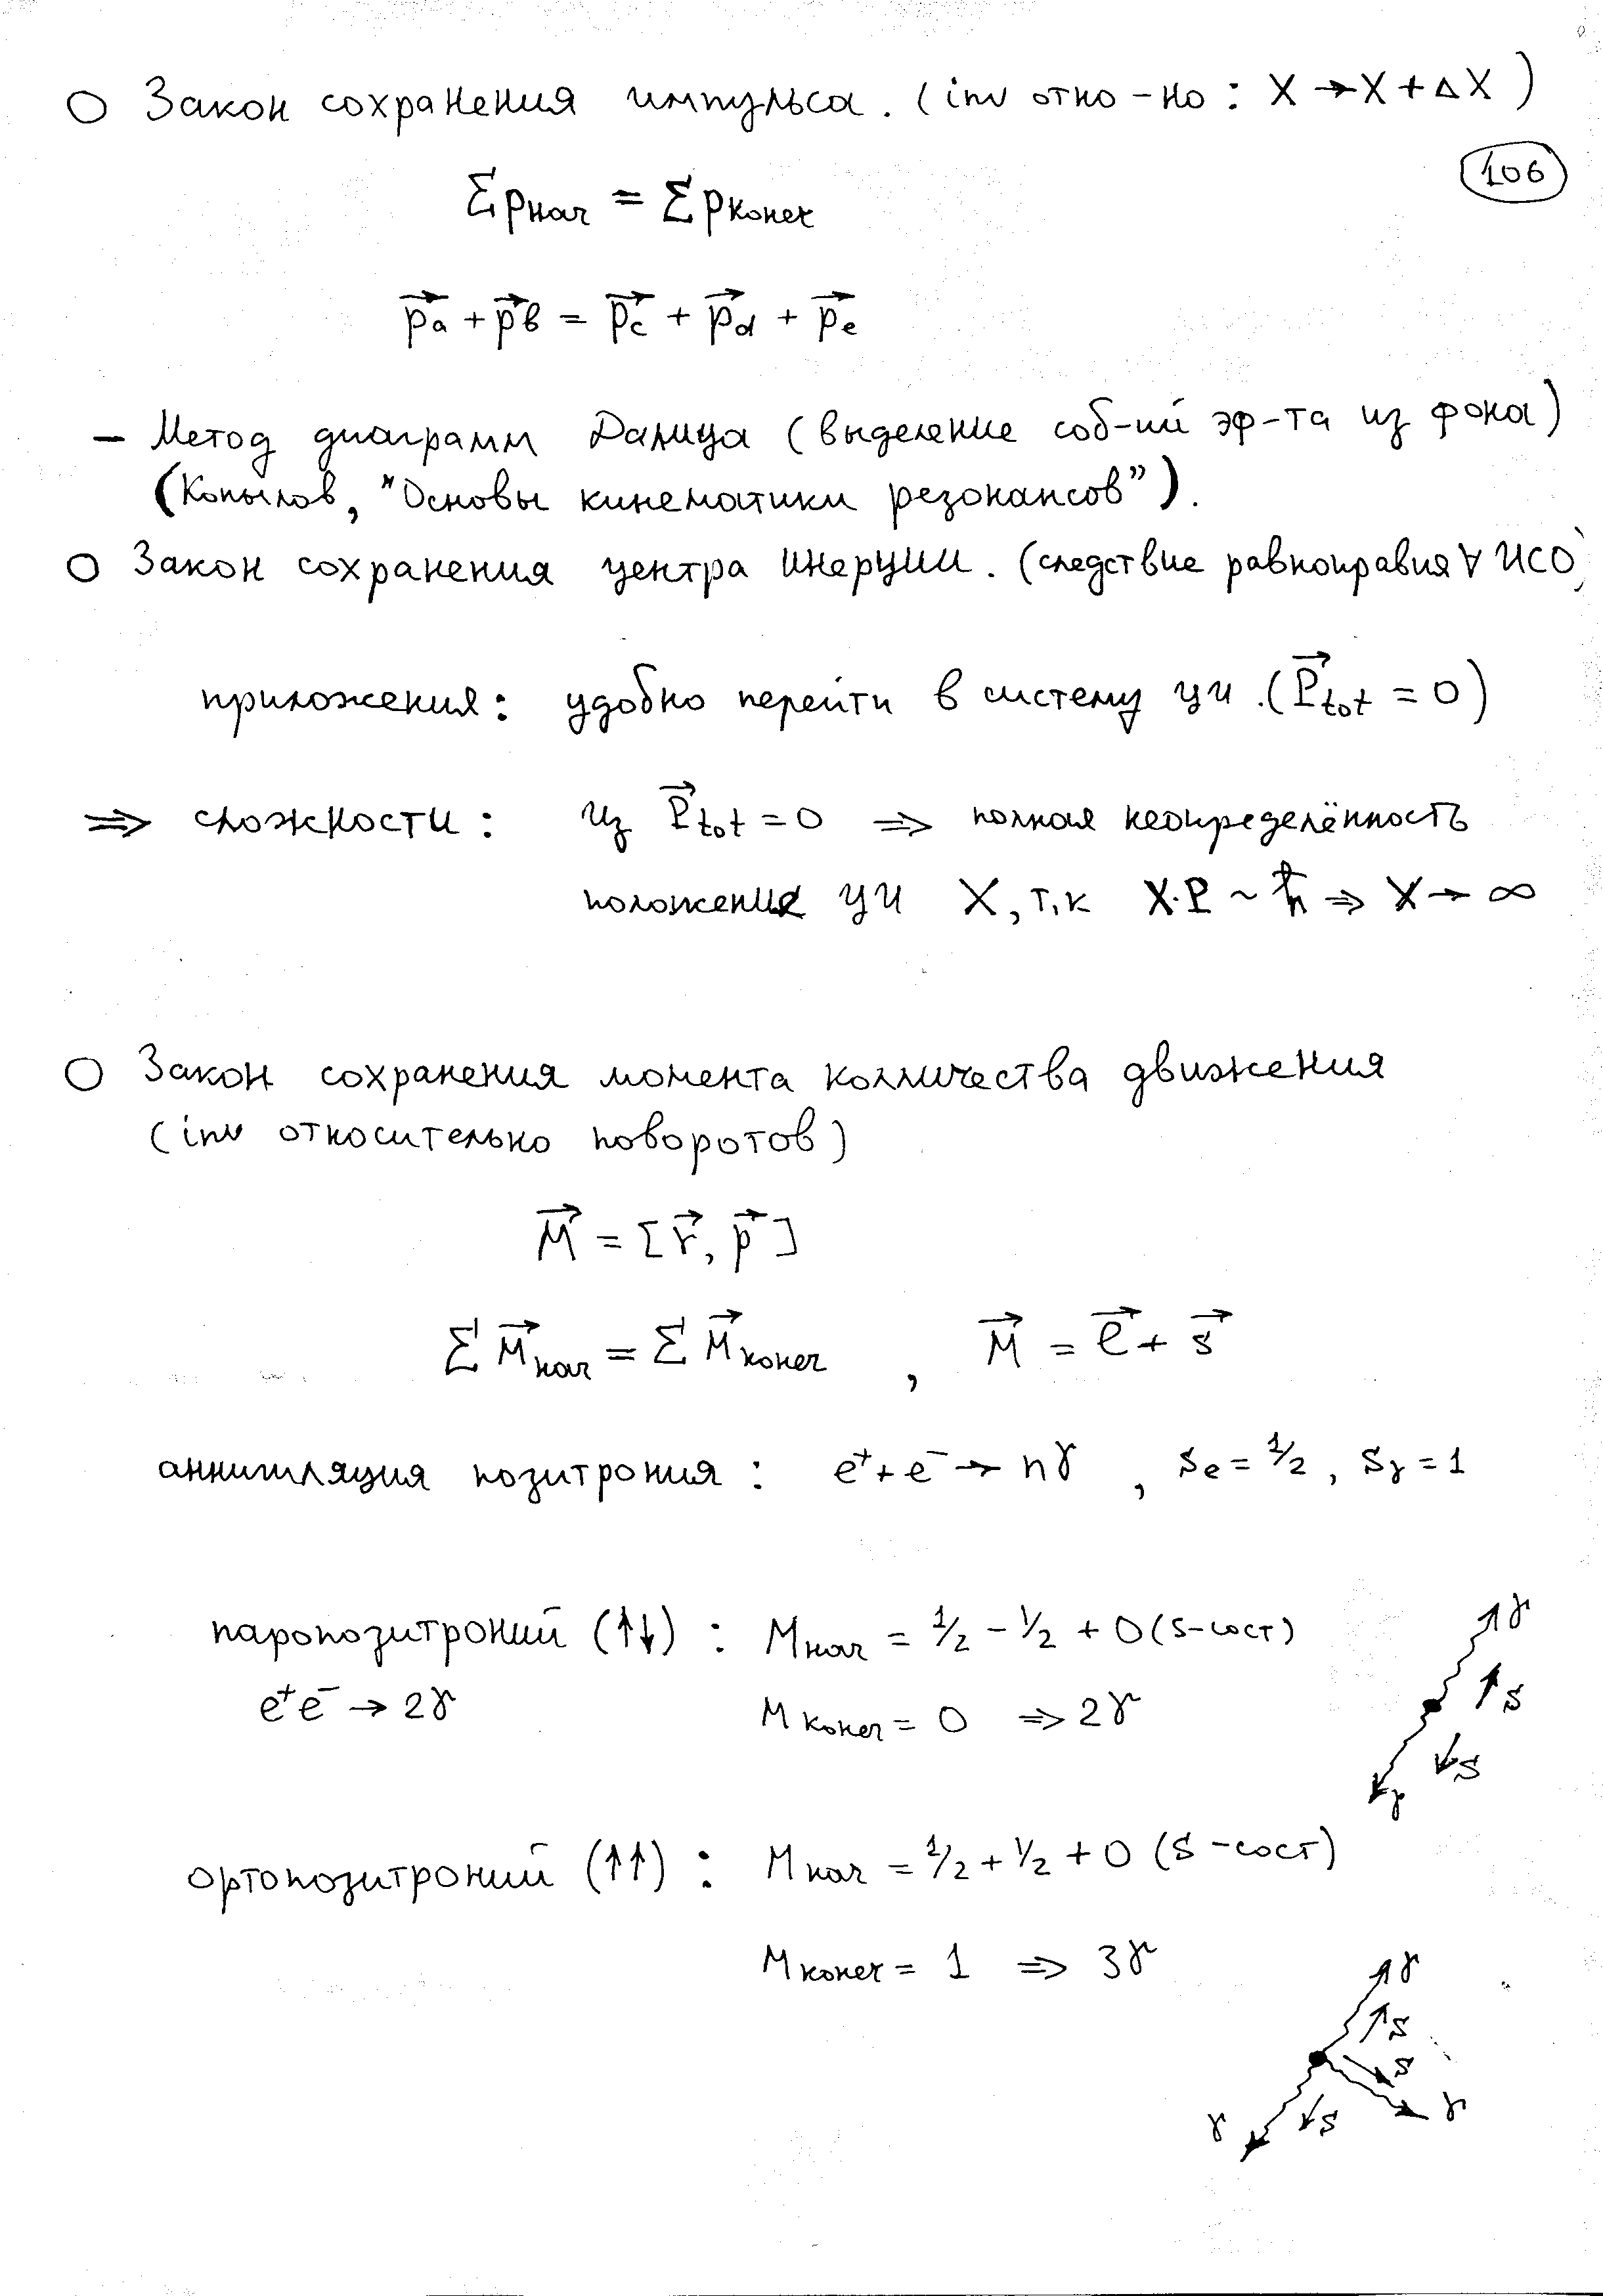 ○ Закон сохранения импульса. (inv отно-но: X → X + ΔX)
106
Σpнач = Σpконеч
p⃗a + p⃗b = p⃗c + p⃗d + p⃗e
– Метод диаграмм Далица (выделение соб-ий эф-та из фона)
(Копылов, "Основы кинематики резонансов").
○ Закон сохранения центра инерции. (следствие равноправия ∀ ИСО)
приложения: удобно перейти в систему ЦИ. (P⃗tot = 0)
⇒ сложности: из P⃗tot = 0 ⇒ полная неопределённость
положения ЦИ X, т.к X·P ~ ħ ⇒ X → ∞
○ Закон сохранения момента колличества движения
(inv относительно поворотов)
M⃗ = [r⃗, p⃗]
Σ M⃗нач = Σ M⃗конеч , M⃗ = ℓ⃗ + s⃗
аннигиляция позитрония: e⁺ + e⁻ → nγ , Se = 1/2, Sγ = 1
парапозитроний (↑↓): Mнач = 1/2 − 1/2 + 0 (S-сост)
γ
s
e⁺e⁻ → 2γ Mконеч = 0 ⇒ 2γ
s
γ
ортопозитроний (↑↑): Mнач = 1/2 + 1/2 + 0 (S-сост)
Mконеч = 1 ⇒ 3γ
γ
s
s
γ s γ